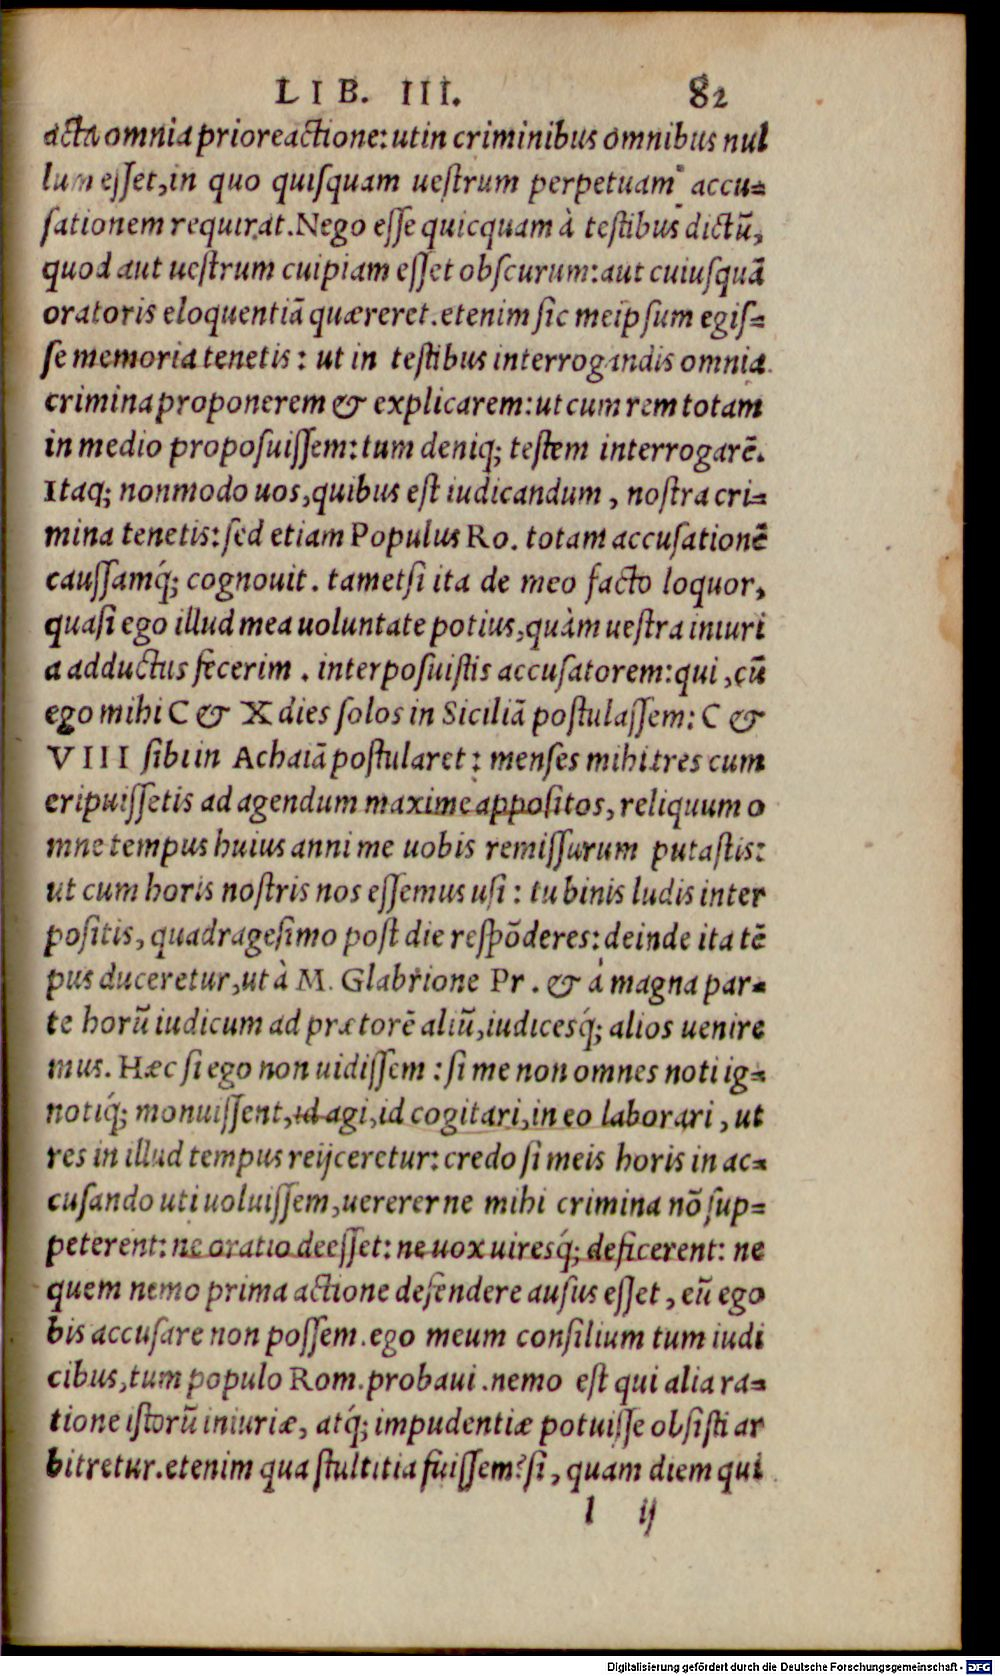 LIB. III. 82
acta omnia priore actione: ut in criminibus omnibus nul
lum eſſet, in quo quiſquam ueſtrum perpetuam accu=
ſationem requirat. Nego eſſe quicquam à teſtibus dictū,
quod aut ueſtrum cuipiam eſſet obſcurum: aut cuiuſquā
oratoris eloquentiā quæreret. etenim ſic meipſum egiſ=
ſe memoria tenetis: ut in teſtibus interrogandis omnia
crimina proponerem & explicarem: ut cum rem totam
in medio propoſuiſſem: tum deniq; teſtem interrogarē.
Itaq; non modo uos, quibus eſt iudicandum, noſtra cri=
mina tenetis: ſed etiam Populus Ro. totam accuſationē
cauſſamq́; cognouit. tametſi ita de meo facto loquor,
quaſi ego illud mea uoluntate potius, quàm ueſtra iniuri
a adductus fecerim. interpoſuiſtis accuſatorem: qui, cū
ego mihi C & X dies ſolos in Siciliā poſtulaſſem: C &
VIII ſibi in Achaiā poſtularet: menſes mihi tres cum
eripuiſſetis ad agendum maxime appoſitos, reliquum o
mne tempus huius anni me uobis remiſſurum putaſtis:
ut cum horis noſtris nos eſſemus uſi: tu binis ludis inter
poſitis, quadrageſimo poſt die reſpōderes: deinde ita tē
pus duceretur, ut à M. Glabrione Pr. & à magna par=
te horū iudicum ad prætorē aliū, iudicesq́; alios uenire
mus. Hæc ſi ego non uidiſſem: ſi me non omnes noti ig=
notiq́; monuiſſent, id agi, id cogitari, in eo laborari, ut
res in illud tempus reijceretur: credo ſi meis horis in ac=
cuſando uti uoluiſſem, uererer ne mihi crimina nō ſup=
peterent: ne oratio deeſſet: ne uox uiresq́; deficerent: ne
quem nemo prima actione defendere auſus eſſet, eū ego
bis accuſare non poſſem. ego meum conſilium tum iudi
cibus, tum populo Rom. probaui. nemo eſt qui alia ra=
tione iſtorū iniuriæ, atq́; impudentiæ potuiſſe obſiſti ar
bitretur. etenim qua ſtultitia fuiſſem? ſi, quam diem qui
l ij
Digitalisierung gefördert durch die Deutsche Forschungsgemeinschaft - DFG